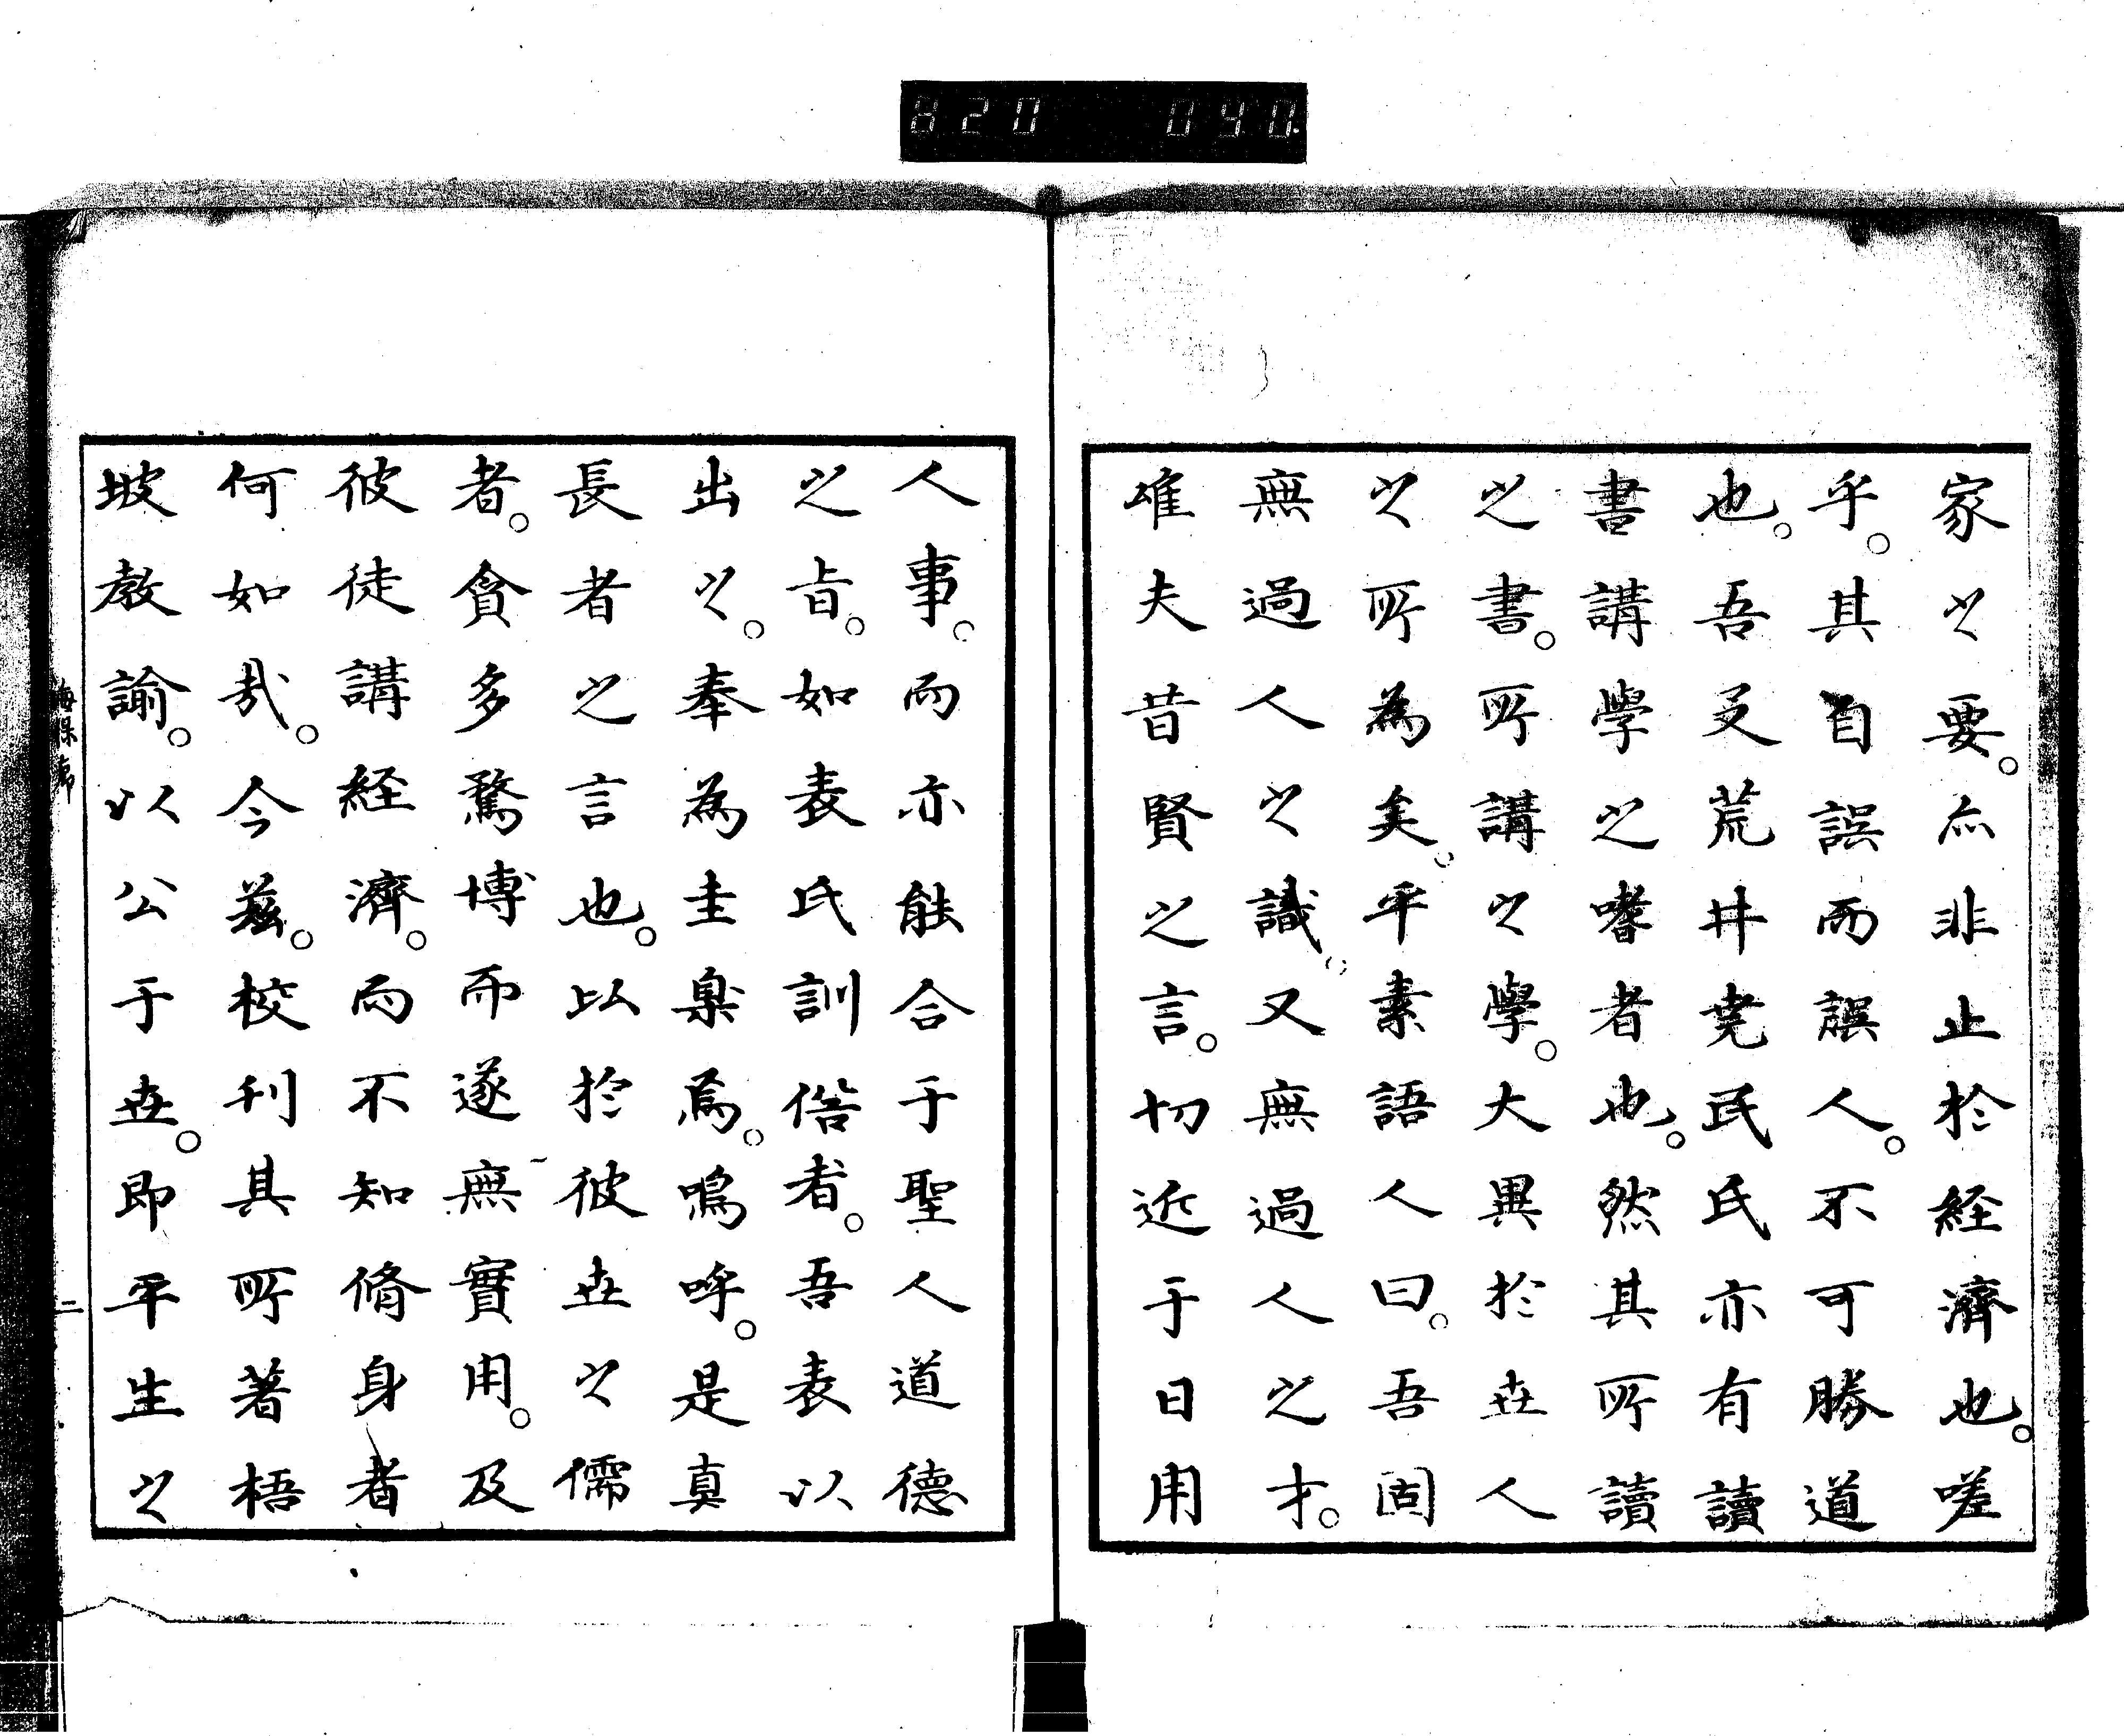 820 040.
家之要。亦非止於経濟也。嗟
乎。其自誤而誤人。不可勝道
也。吾友荒井尭民氏亦有讀
書講學之嗜者也。然其所讀
之書。所講之學。大異於世人
之所為矣。平素語人曰。吾固
無過人之識。又無過人之才。
唯夫昔賢之言。切近于日用
人事。而亦能合于聖人道德
之旨。如袁氏訓俗者。吾表以
出之。奉為圭臬焉。嗚呼。是真
長者之言也。以於彼世之儒
者。貪多騖博而遂無實用。及
彼徒講経濟。而不知脩身者
何如哉。今茲。校刊其所著梧
坡教諭。以公于世。即平生之
二